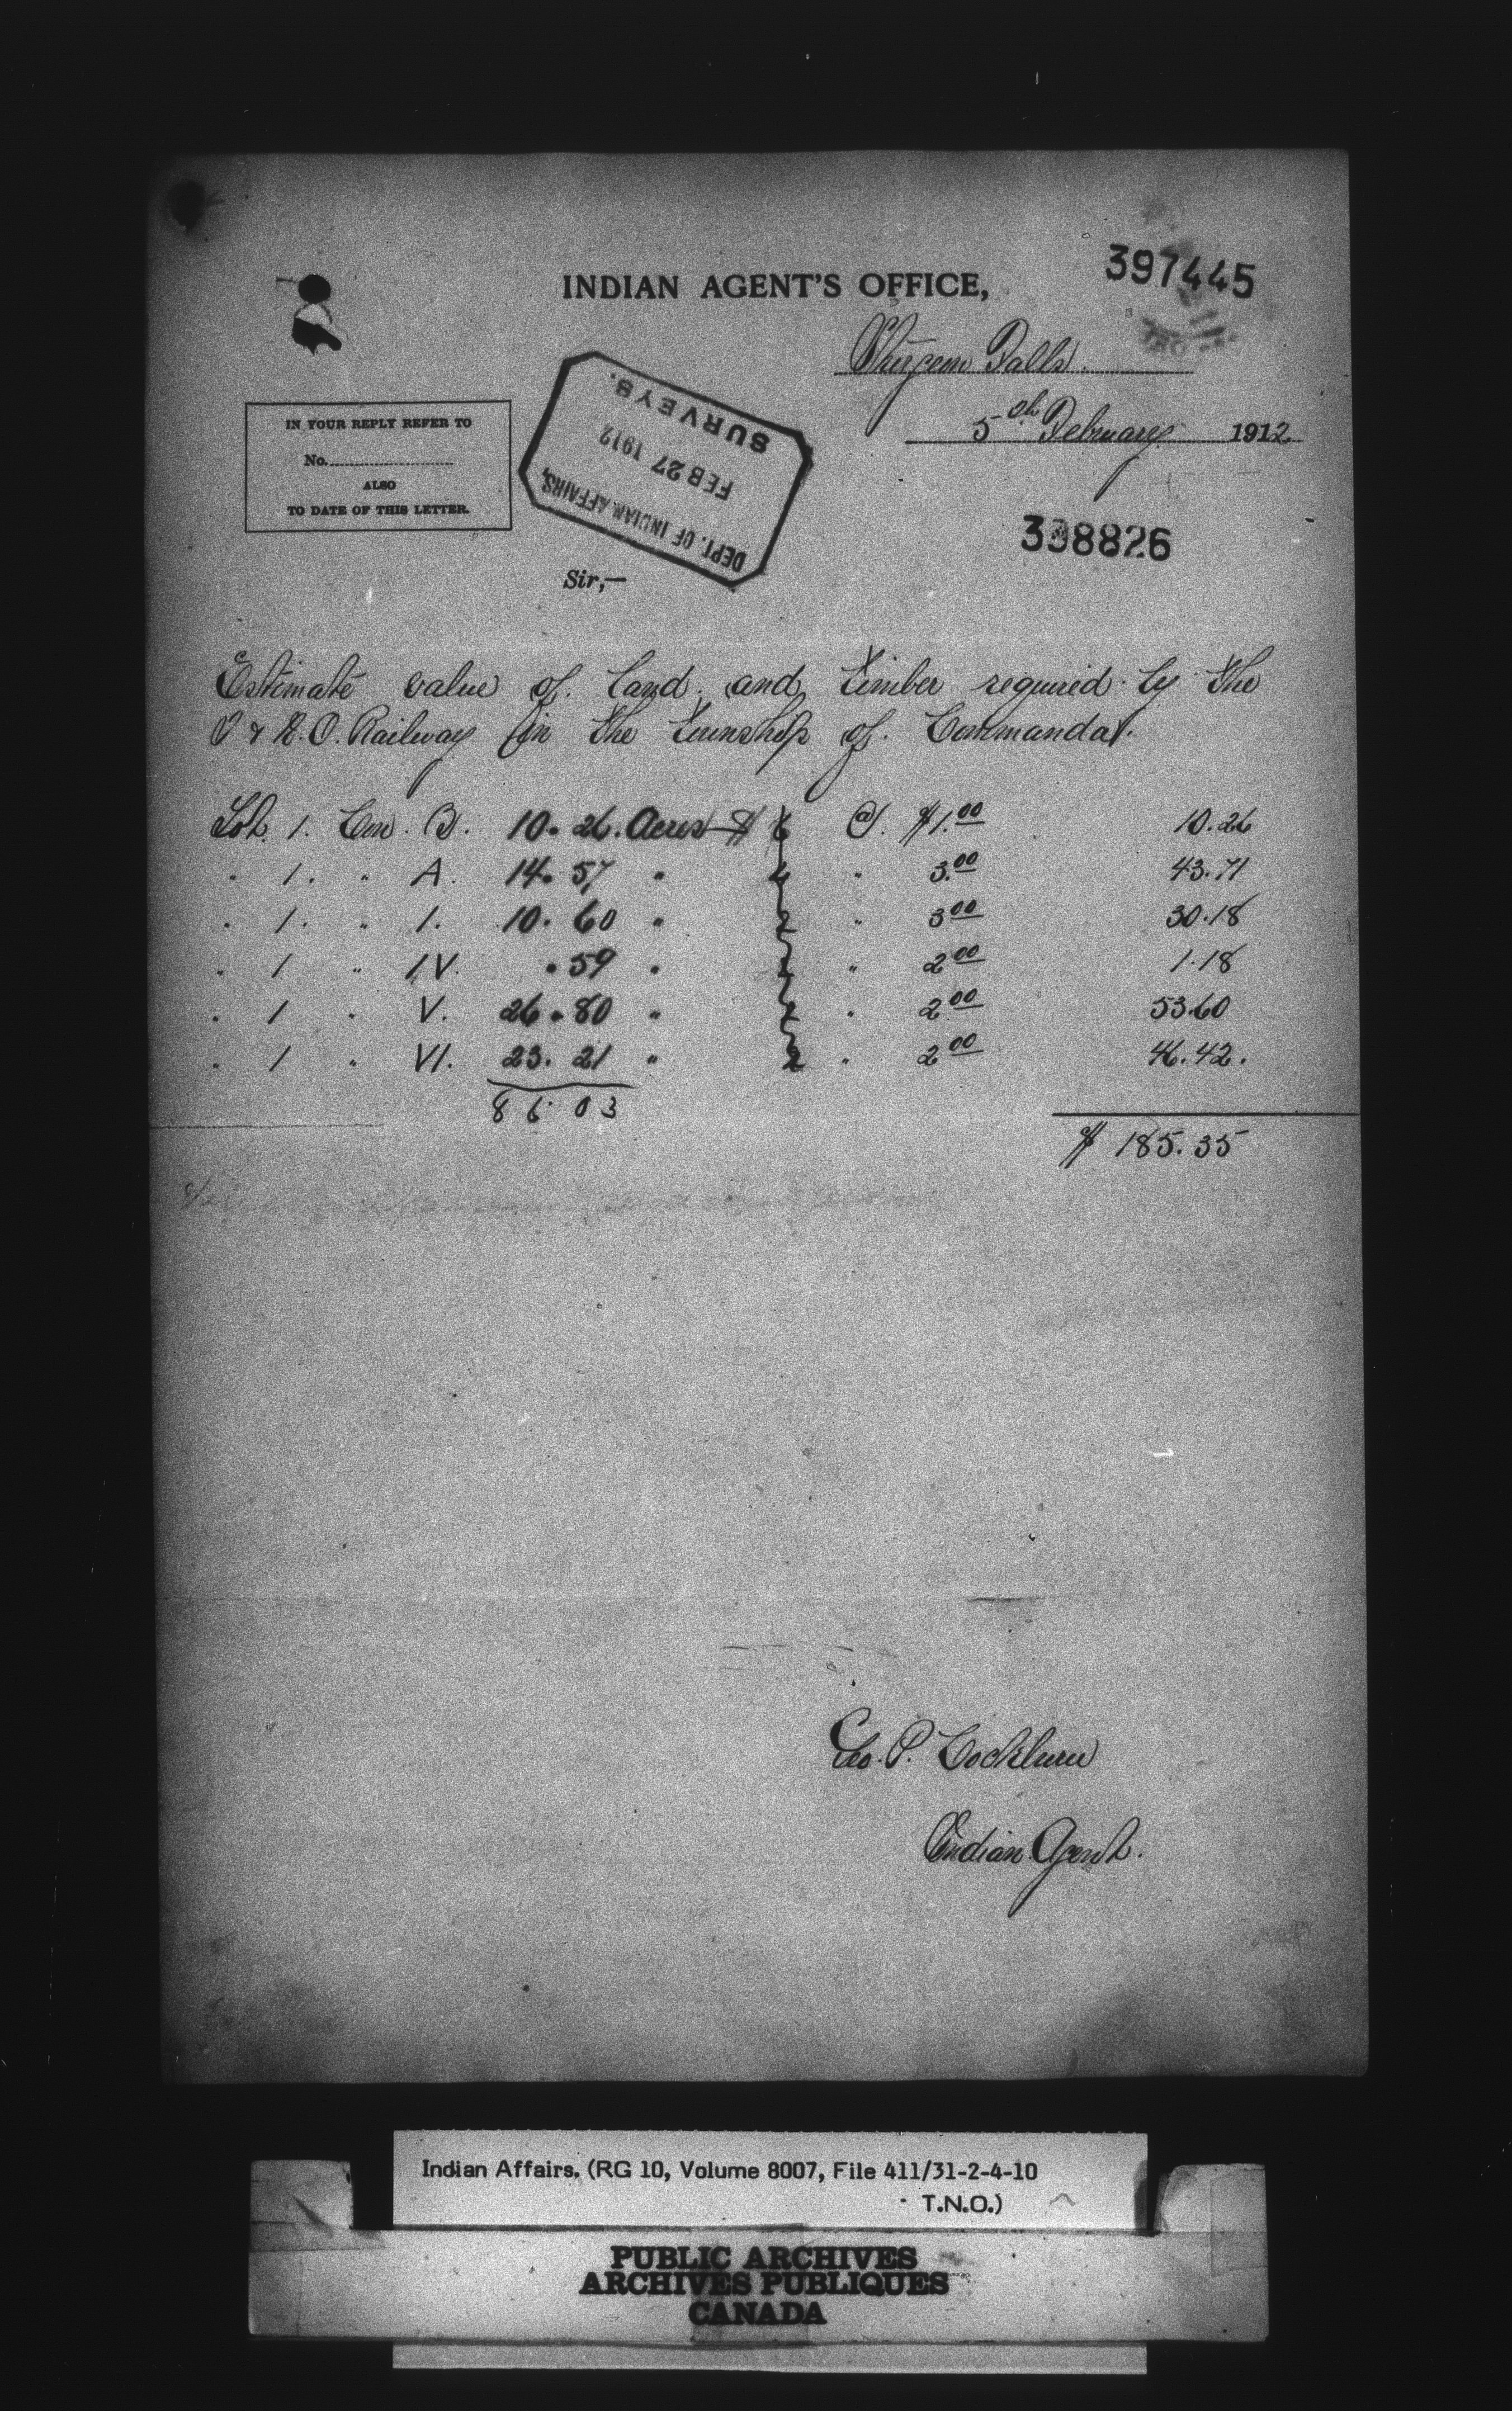 397445
INDIAN AGENT'S OFFICE,
Sturgeon Falls.
5th February 1912
IN YOUR REPLY REFER TO
No.
ALSO
TO DATE OF THIS LETTER.
DEPT. OF INDIAN AFFAIRS,
FEB 27 1912
SURVEYS.
398826
Sir,—
Estimate value of land and timber required by the
O & R. O. Railway in the township of Commanda.
Lot 1. Con. B. 10.26. Acres @ $1.00 10.26
" 1. " A. 14.57 " " 3.00 43.71
" 1. " 1. 10.60 " " 3 00 30.18
" 1 " IV. .59 " " 2 00 1.18
" 1 " V. 26.80 " " 2 00 53.60
" 1 " VI. 23.21 " 2 " 2 00 46.42.
86.03
$ 185.35
Geo. P. Cockburn
Indian Agent.
Indian Affairs. (RG 10, Volume 8007, File 411/31-2-4-10
T.N.O.)
PUBLIC ARCHIVES
ARCHIVES PUBLIQUES
CANADA